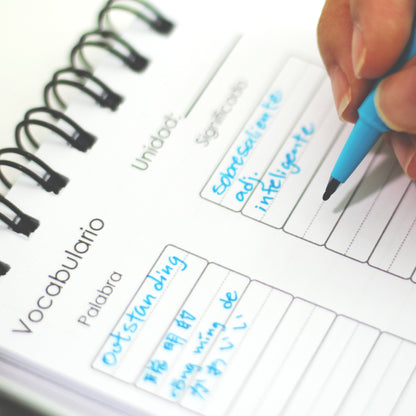 Vocabulario
Unidad:
Palabra
Significado
outstanding
sobresaliente
adj.
聪明的
inteligente
cong ming de
かわいい